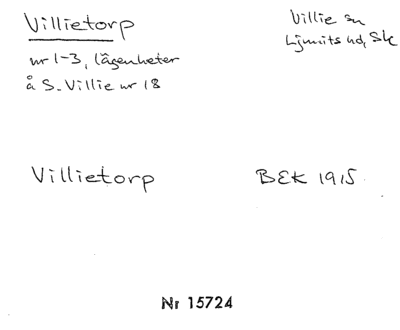 Villietorp
Villie sn
Ljunits hd, Sk
nr 1-3, lägenheter
å S. Villie nr 18
Villietorp
BEK 1915.
Nr 15724